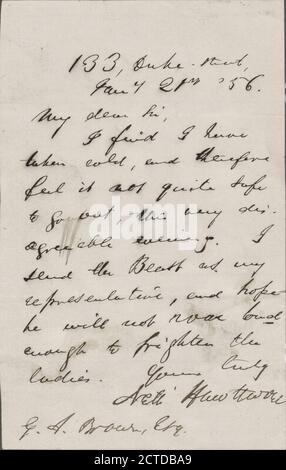 133, Duke-street,
Jany 21st '56.
My dear Sir,
I find I have
taken cold, and therefore
feel it not quite safe
to go out, this very dis-
agreeable evening. I
send the Beast as my
representative, and hope
he will not roar loud
enough to frighten the
ladies. Yours truly
Nath Hawthorne
G. A. Brown, Esq.
alamy
Image ID: 2CTDBA9
www.alamy.com